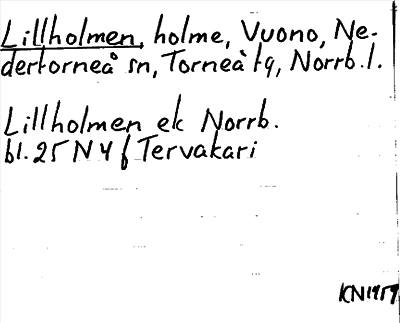 Lillholmen, holme, Vuono, Ne-
dertorneå sn, Torneå tg, Norrb. l.
Lillholmen ek Norrb.
bl. 25 N Y f Tervakari
KN 1959